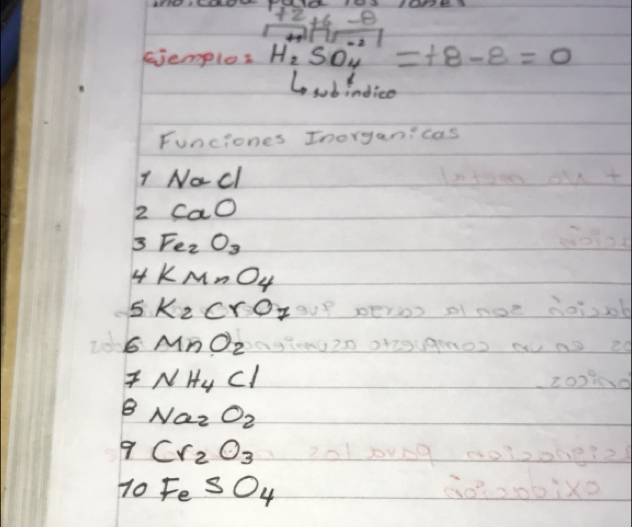 indicada para los iones
+2 +6 -8
+1 -2
Ejemplo: H2 SO4 = +8-8 = 0
↳ subíndice
Funciones Inorganicas
1 NaCl
2 CaO
3 Fe2 O3
4 KMnO4
5 K2 CrO7
6 MnO2
7 NH4 Cl
8 Na2 O2
9 Cr2 O3
10 Fe SO4